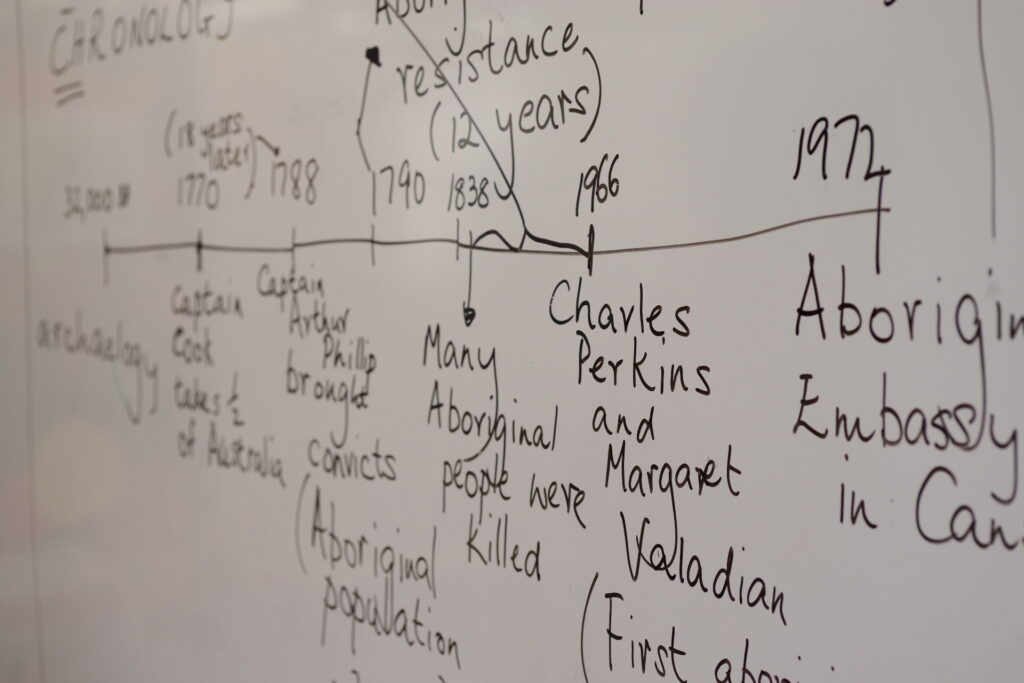 CHRONOLOGY
resistance
(12 years)
(18 years
later)
1770
1788
1790
1838
1966
1972
archaelogy
Captain
Cook
takes ½
of Australia
Captain
Arthur
Phillip
brought
convicts
(Aboriginal
population
Many
Aboriginal
people were
killed
Charles
Perkins
and
Margaret
Valadian
(First
Aborigin
Embassy
in Can